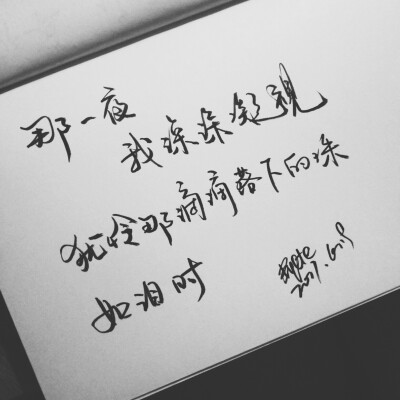 那一夜
我深深凝视
犹怜那滴滴落下的珠
如泪时
2017.6.19